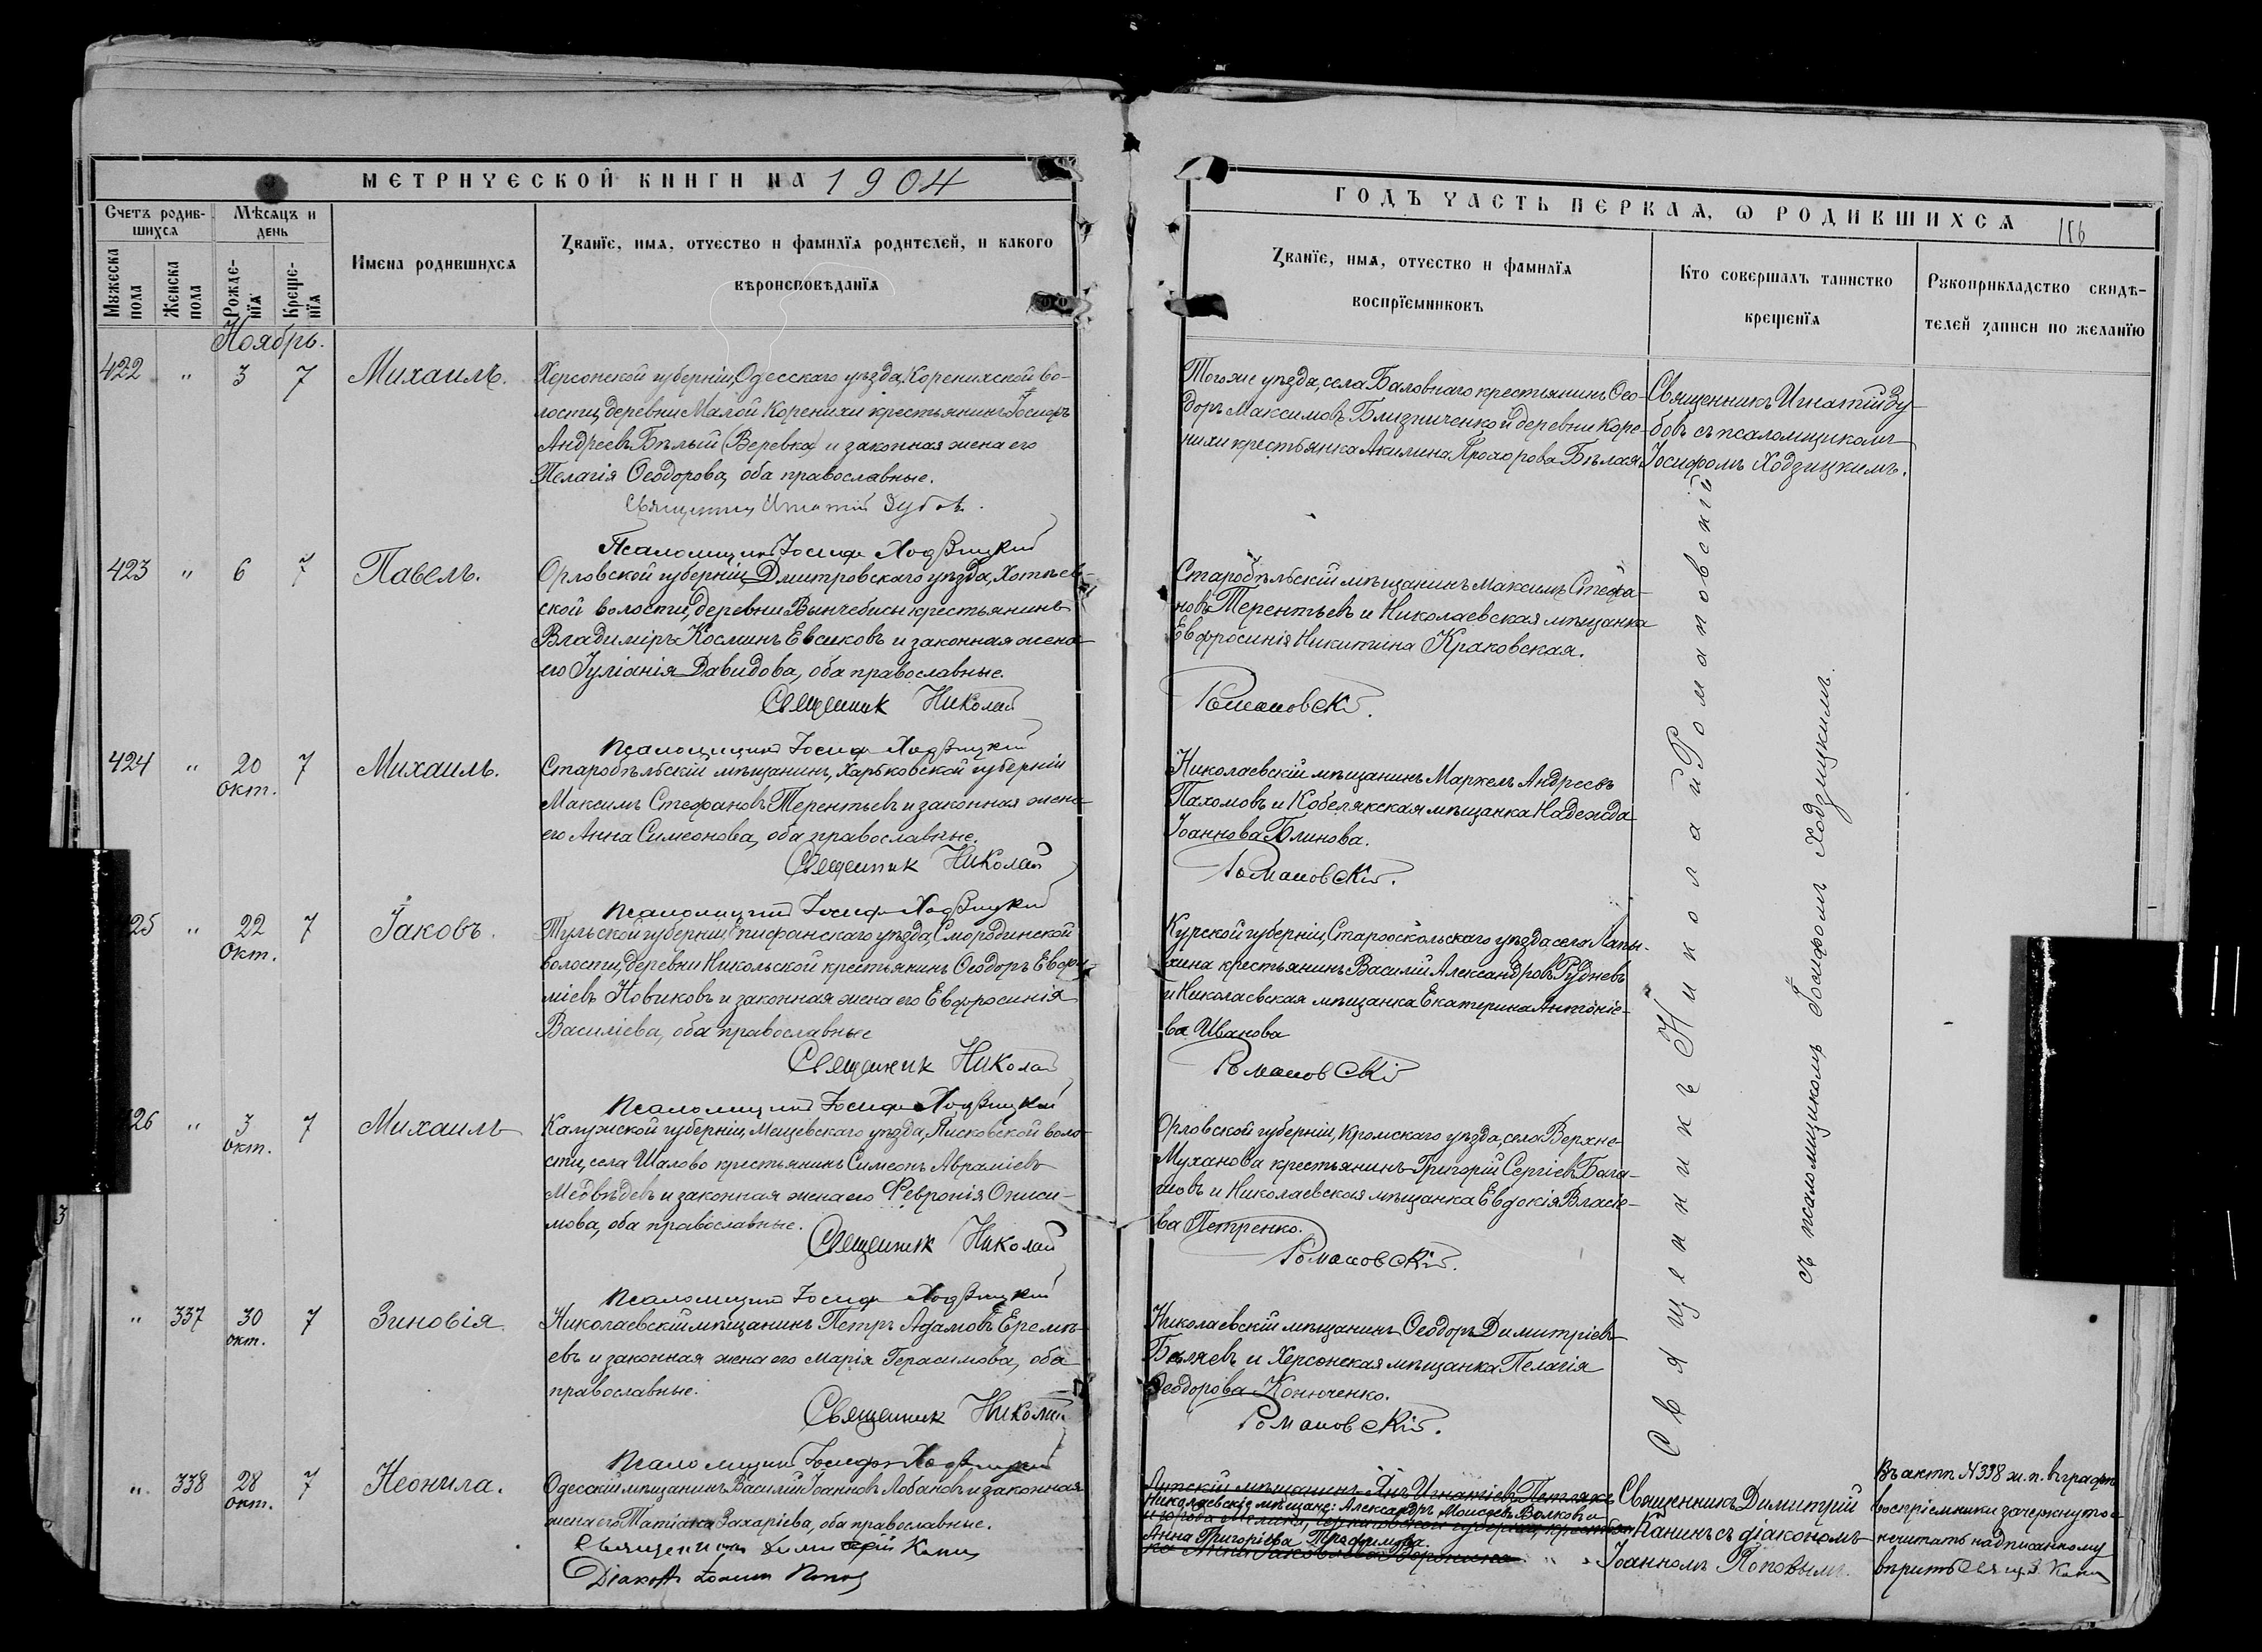 МЕТРИЧЕСКОЙ КНИГИ НА 1904
Счетъ родив-
шихся
Мѣсяцъ и
день
Мужеска
пола
Женска
пола
Рожде-
нїя
Креще-
нїя
Имена родившихся
Званїе, имя, отчество и фамилїя родителей, и какого
вѣроисповѣданїя
Ноябрь.
422 " 3 7 Михаилъ.
Херсонской губерніи, Одесскаго уѣзда, Коренихской во-
лости, деревни Малой Коренихи крестьянинъ Іосифъ
Андреевъ Бѣлый (Веревка) и законная жена его
Пелагія Ѳеодорова, оба православные.
Священникъ Игнатій Зубовъ.
Псаломщикъ Іосифъ Ходзицкій
423 " 6 7 Павелъ.
Орловской губерніи, Дмитровскаго уѣзда, Хотѣев-
ской волости, деревни крестьянинъ
Владиміръ Косминъ Евсиковъ и законная жена
его Іуліанія Давидова, оба православные.
Священник Николай
Псаломщикъ Іосифъ Ходзицкій
424 " 20 окт. 7 Михаилъ.
Старобѣльскій мѣщанинъ, Харьковской губерніи
Максимъ Стефановъ Терентьевъ и законная жена
его Анна Симеонова, оба православные.
Священник Николай
Псаломщикъ Іосифъ Ходзицкій
25 " 22 Окт. 7 Іаковъ.
Тульской губерніи, Епифанскаго уѣзда, Смородинской
волости, деревни Никольской крестьянинъ Ѳеодоръ Евфи-
міевъ Новиковъ и законная жена его Евфросинія
Василіева, оба православные
Священник Николай
Псаломщикъ Іосифъ Ходзицкій
26 " 3 окт. 7 Михаилъ
Калужской губерніи, Мещевскаго уѣзда, воло-
сти, села Шалово крестьянинъ Симеонъ Авраміевъ
Медвѣдевъ и законная жена его Ѳевронія Ониси-
мова, оба православные.
Священник Николай
Псаломщикъ Іосифъ Ходзицкій
" 337 30 окт. 7 Зиновія
Николаевскій мѣщанинъ Петръ Адамовъ Еремѣ-
евъ и законная жена его Марія Герасимова, оба
православные.
Священник Николай
Псаломщикъ Іосифъ Ходзицкій
" 338 28 окт. 7 Неонила.
Одесскій мѣщанинъ Василій Іоанновъ Лобановъ и законная
жена его Татіана Захаріева, оба православные.
Священникъ Димитрій Канинъ
Діаконъ Іоаннъ Поповъ
ГОДЪ ЧАСТЬ ПЕРВАЯ, Ѡ РОДИВШИХСЯ
186
Званїе, имя, отчество и фамилїя
воспрїемниковъ
Кто совершалъ таинство
крещенїя
Рукоприкладство свидѣ-
телей записи по желанїю
Тогоже уѣзда, села Баловнаго крестьянинъ Ѳео-
доръ Максимовъ Близниченко и деревни Коре-
нихи крестьянка Акилина Прохорова Бѣлая.
Священникъ Игнатій Зу-
бовъ съ псаломщикомъ
Іосифомъ Ходзицкимъ.
Старобѣльскій мѣщанинъ Максимъ Стефа-
новъ Терентьевъ и Николаевская мѣщанка
Евфросинія Никитина Краковская.
Романовскій.
Николаевскій мѣщанинъ Маркелъ Андреевъ
Пахомовъ и Кобелякская мѣщанка Надежда
Іоаннова Блинова.
Романовскій.
Курской губерніи, Старооскольскаго уѣзда села Лапы-
хина крестьянинъ Василій Александровъ Рудневъ
и Николаевская мѣщанка Екатерина Антоніе-
ва Иванова
Романовскій
Орловской губерніи, Кромскаго уѣзда, села Верхне-
Муханова крестьянинъ Григорій Сергіевъ
и Николаевская мѣщанка Евдокія Власіе-
ва Петренко.
Романовскій.
Николаевскій мѣщанинъ Ѳеодоръ Димитріевъ
Бѣляевъ и Херсонская мѣщанка Пелагія
Ѳеодорова Конюченко.
Романовскій.
Священникъ Николай Романовскій
съ псаломщикомъ Іосифомъ Ходзицкимъ.
мѣщанинъ Игнатіевъ
Николаевскіе мѣщане: Александръ Моисеевъ Волковъ и
и города губерніи,
Анна Григорьева Трофимова.
Священникъ Димитрій
Канинъ съ діакономъ
Іоанномъ Поповымъ.
Въ актѣ № 338 ж. п. въ графѣ
воспріемники зачеркнутое
нечитать надписанному
вѣрить Свящ. Д. Канинъ